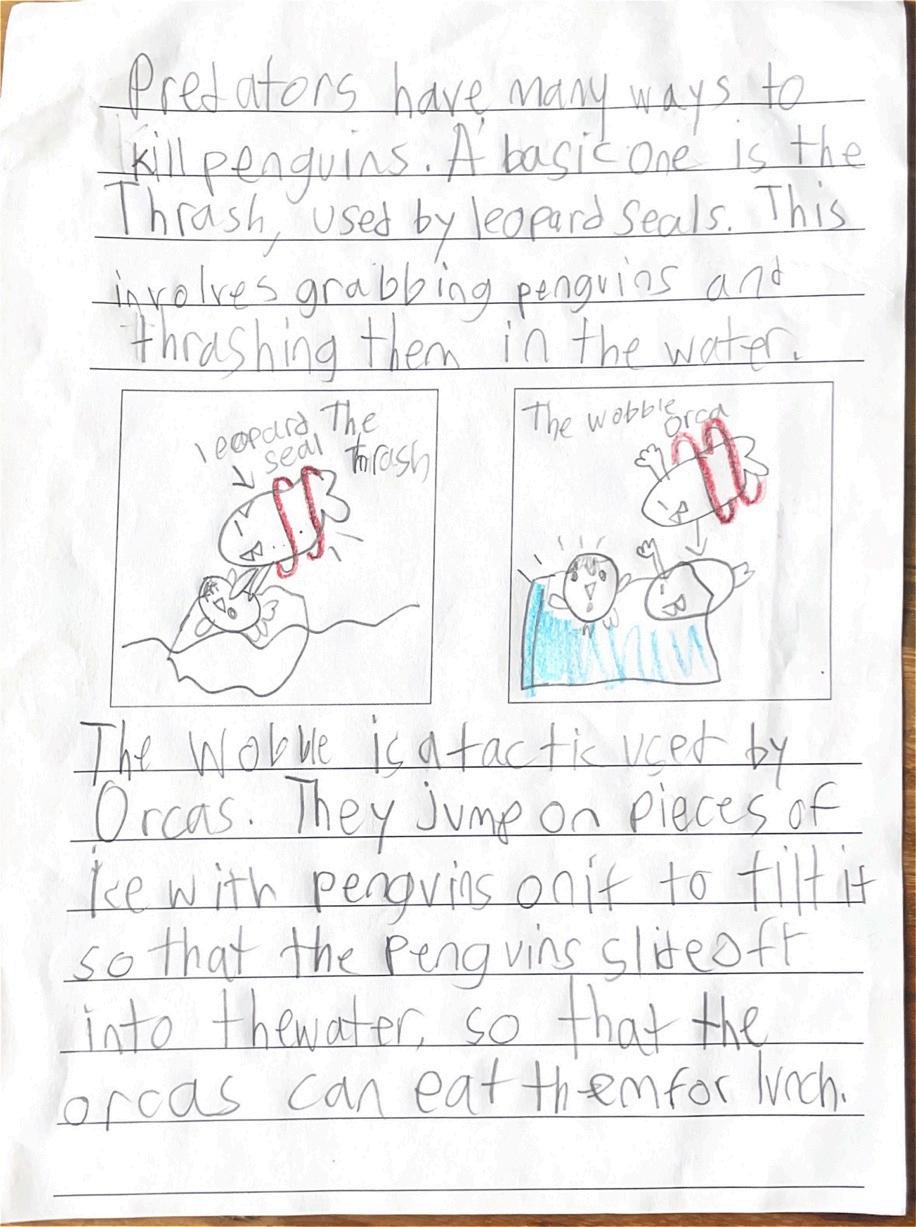 Predators have many ways to
kill penguins. A basic one is the
Thrash, used by leopard seals. This
involves grabbing penguins and
thrashing them in the water.
leopard
seal
The
Thrash
The wobble
orca
The Wobble is a tactic used by
Orcas. They jump on pieces of
Ice with penguins on it to tilt it
so that the penguins slide off
into the water, so that the
orcas can eat them for lunch.